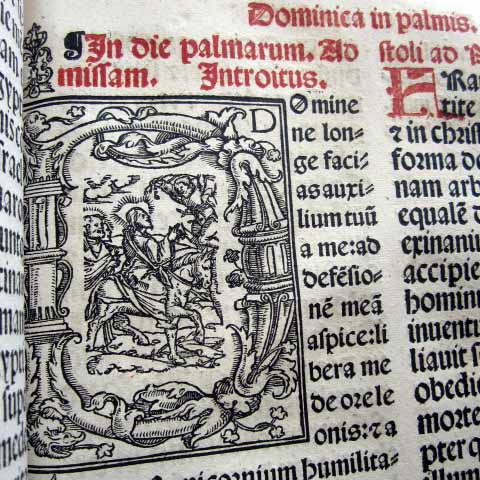 Dominica in palmis.
¶In die palmarum. Ad
missam. Introitus.
D
Omine
ne lon-
ge faci-
as auxi-
lium tuũ
a me: ad
defẽsio-
nẽ meã
aspice: li
bera me
de ore le
onis: ⁊ a
nicornium humilita-
stoli ad
Ra
tite
⁊ in christ
forma de
nam arb
equalẽ d
exinaniu
accipie
hominu
inuentu
liauit s
obedie
morte
pter q
illum